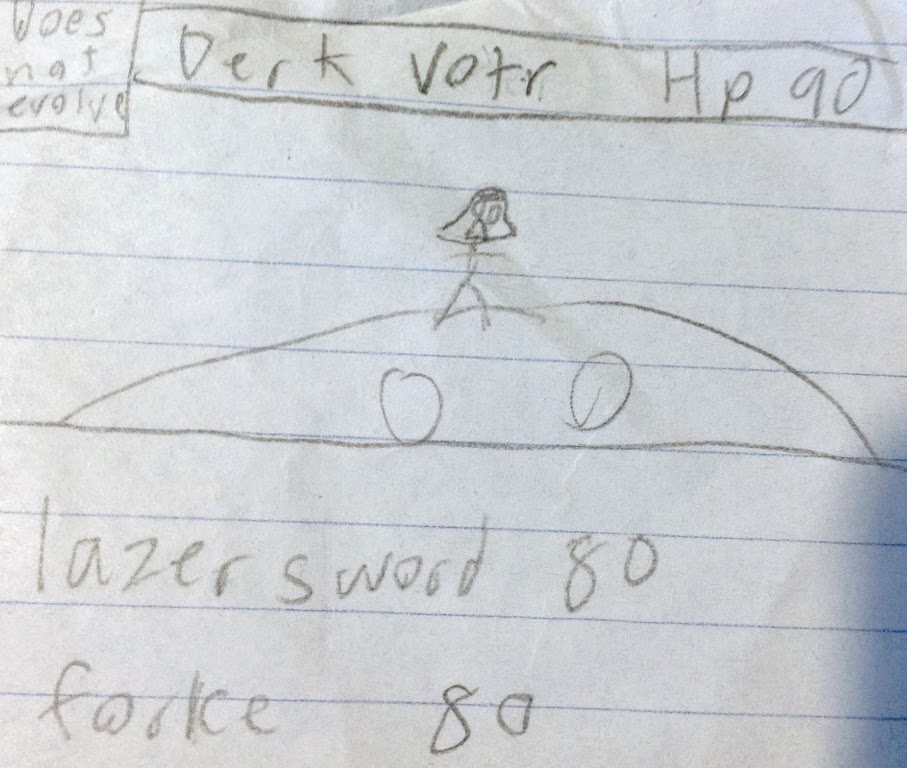 Does
not
evolve
Derk Votr Hp 90
lazer sword 80
forke 80